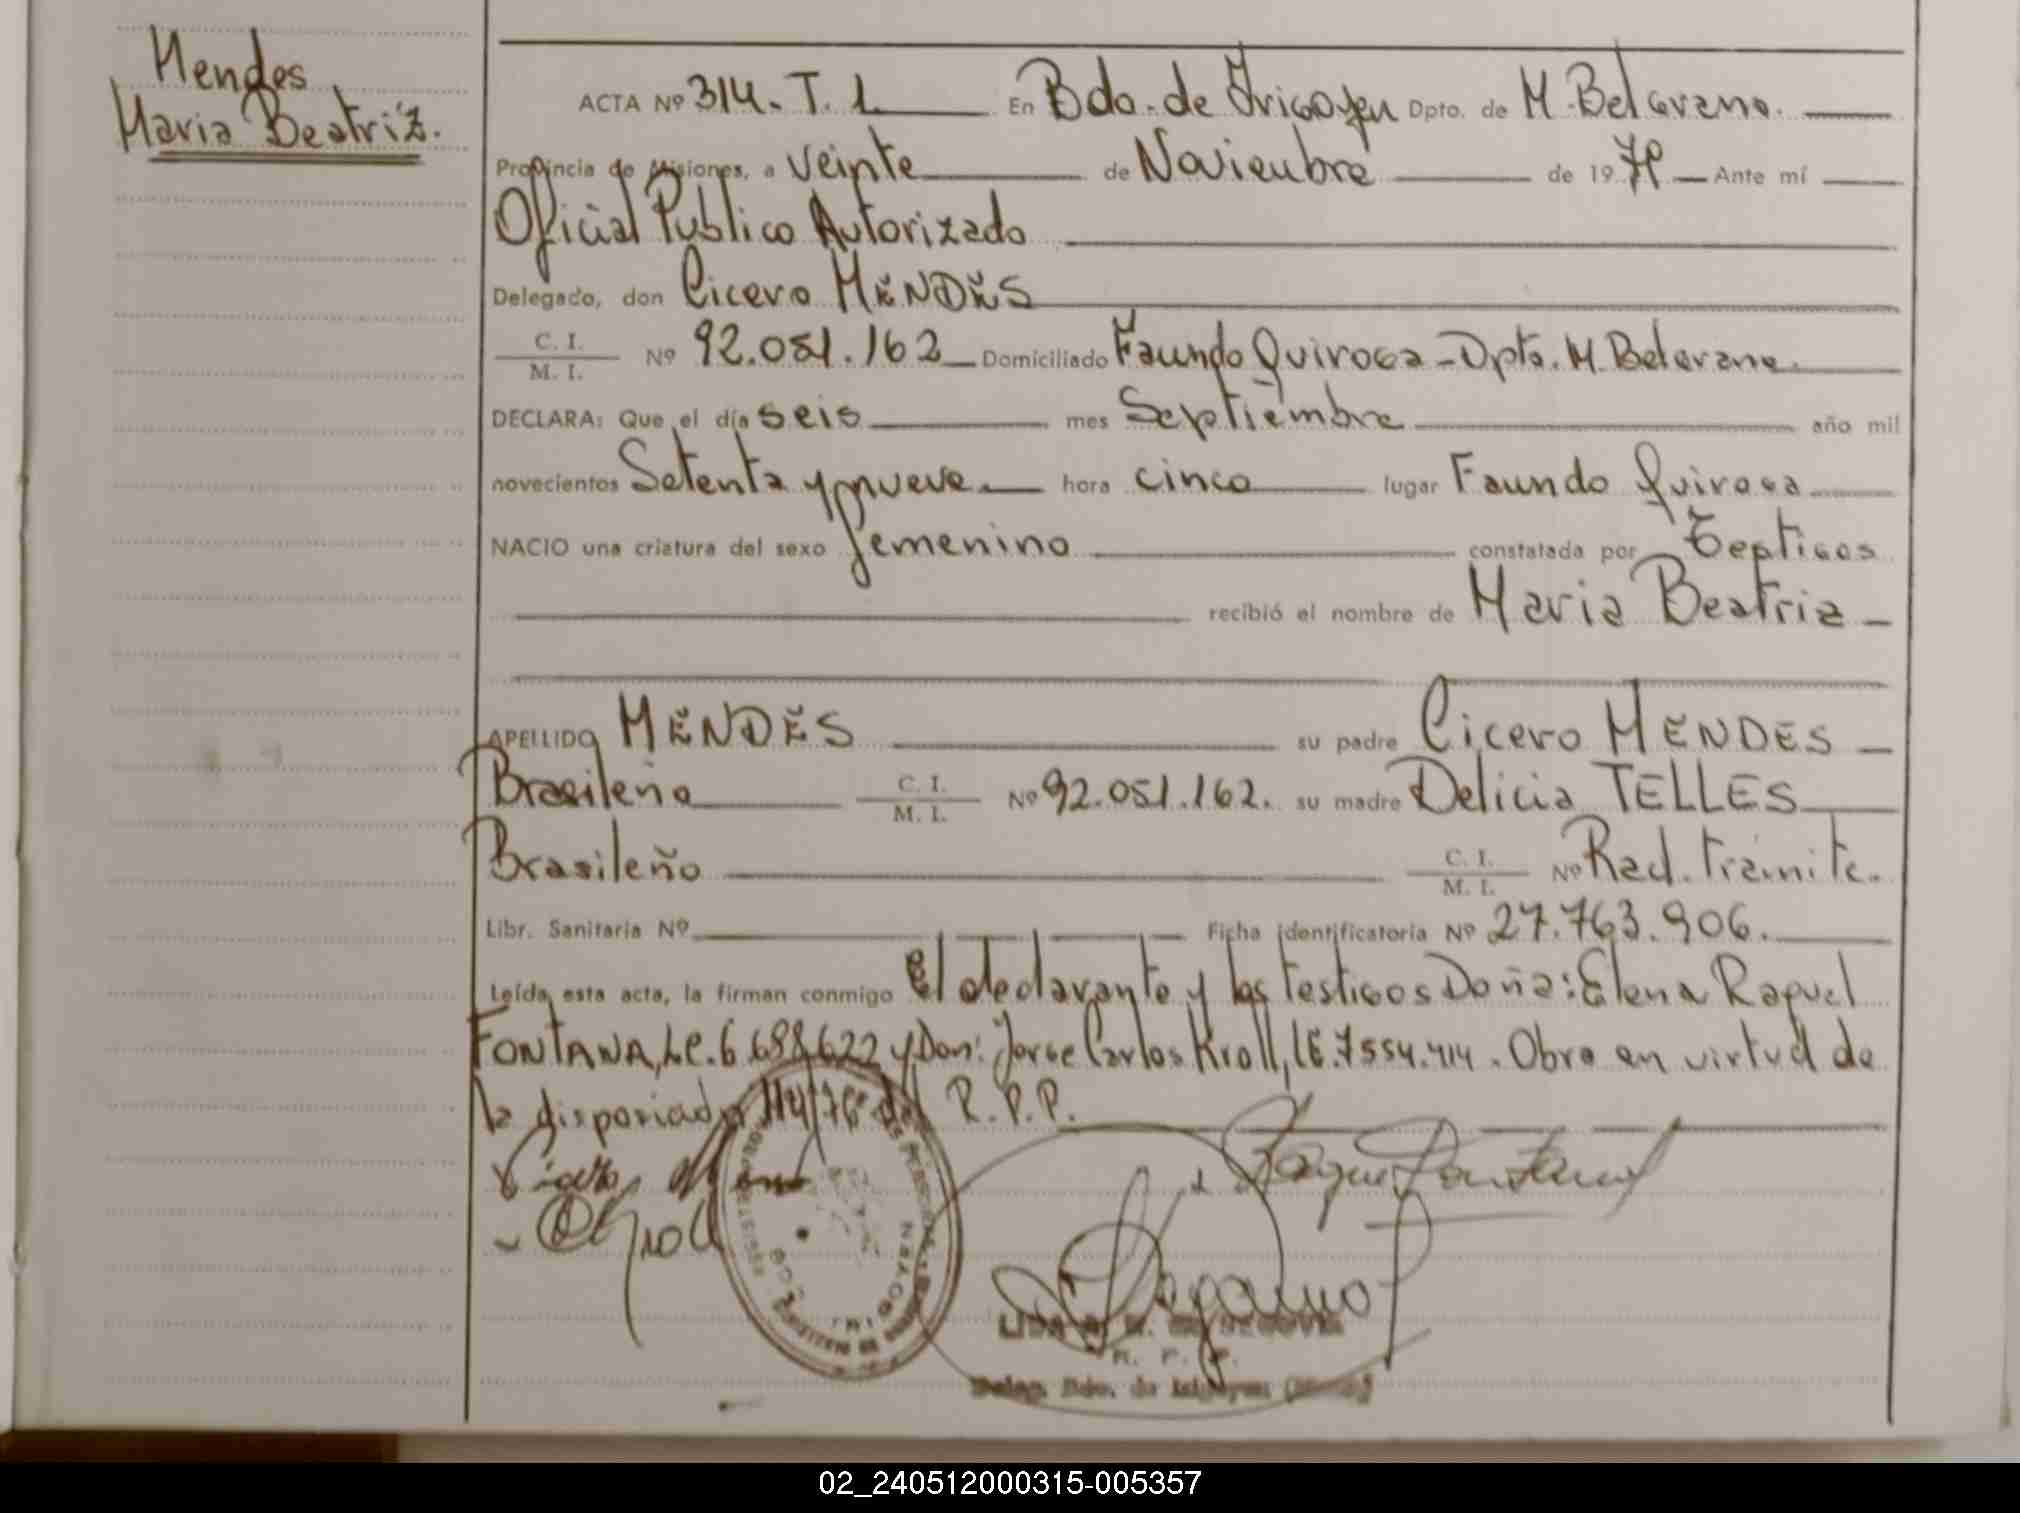 Mendes
Maria Beatriz.
ACTA Nº 314. T. 1 En Bdo. de Irigoyen Dpto. de M. Belgrano.
Provincia de Misiones, a veinte de Noviembre de 1979 Ante mí
Oficial Publico Autorizado
Delegado, don Cicero MENDES
C. I. / M. I. Nº 92.051.162 Domiciliado Faundo Quiroga - Dpto. M. Belgrano.
DECLARA: Que el día seis mes Septiembre año mil
novecientos Setenta y nueve hora cinco lugar Faundo Quiroga
NACIO una criatura del sexo femenino constatada por Testigos
recibió el nombre de Maria Beatriz
APELLIDO MENDES su padre Cicero MENDES
Brasileño C. I. / M. I. Nº 92.051.162. su madre Delicia TELLES
Brasileño C. I. / M. I. Nº Rad. trámite.
Libr. Sanitaria Nº Ficha identificatoria Nº 27.763.906.
Leída esta acta, la firman conmigo el declarante y los testigos Doña: Elena Raquel
FONTANA, LC. 6.688.622 y Don: Jorge Carlos Kroll, LE. 7554.414. Obra en virtud de
la disposición 114/76 del R.P.P.
R. P. P.
Deleg. Bdo. de Irigoyen
02_240512000315-005357